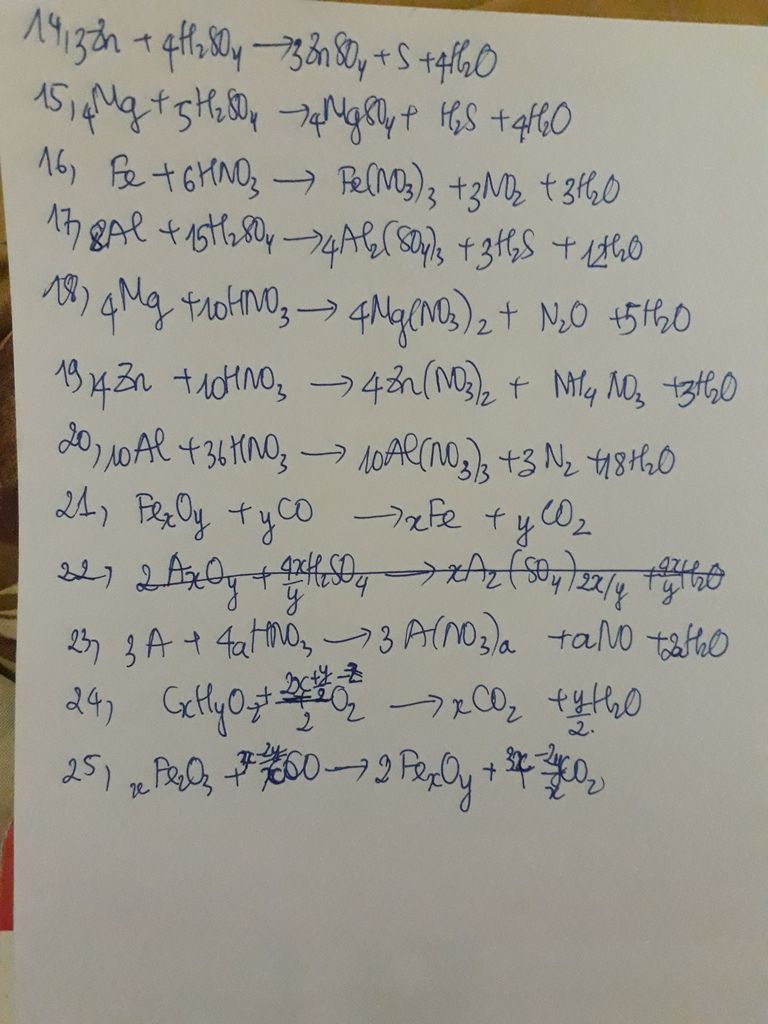 14, 3Zn + 4H₂SO₄ → 3ZnSO₄ + S + 4H₂O
15, 4Mg + 5H₂SO₄ → 4MgSO₄ + H₂S + 4H₂O
16, Fe + 6HNO₃ → Fe(NO₃)₃ + 3NO₂ + 3H₂O
17, 8Al + 15H₂SO₄ → 4Al₂(SO₄)₃ + 3H₂S + 12H₂O
18, 4Mg + 10HNO₃ → 4Mg(NO₃)₂ + N₂O + 5H₂O
19, 4Zn + 10HNO₃ → 4Zn(NO₃)₂ + NH₄NO₃ + 3H₂O
20, 10Al + 36HNO₃ → 10Al(NO₃)₃ + 3N₂ + 18H₂O
21, FeₓOy + yCO → xFe + yCO₂
22, 2AₓOy + 4x/y H₂SO₄ → xA₂(SO₄)2x/y + 4x/y H₂O
23, 3A + 4aHNO₃ → 3A(NO₃)a + aNO + 2aH₂O
24, CxHyOz + O₂ → xCO₂ + y/2 H₂O
25, xFe₂O₃ + CO → 2FeₓOy + CO₂